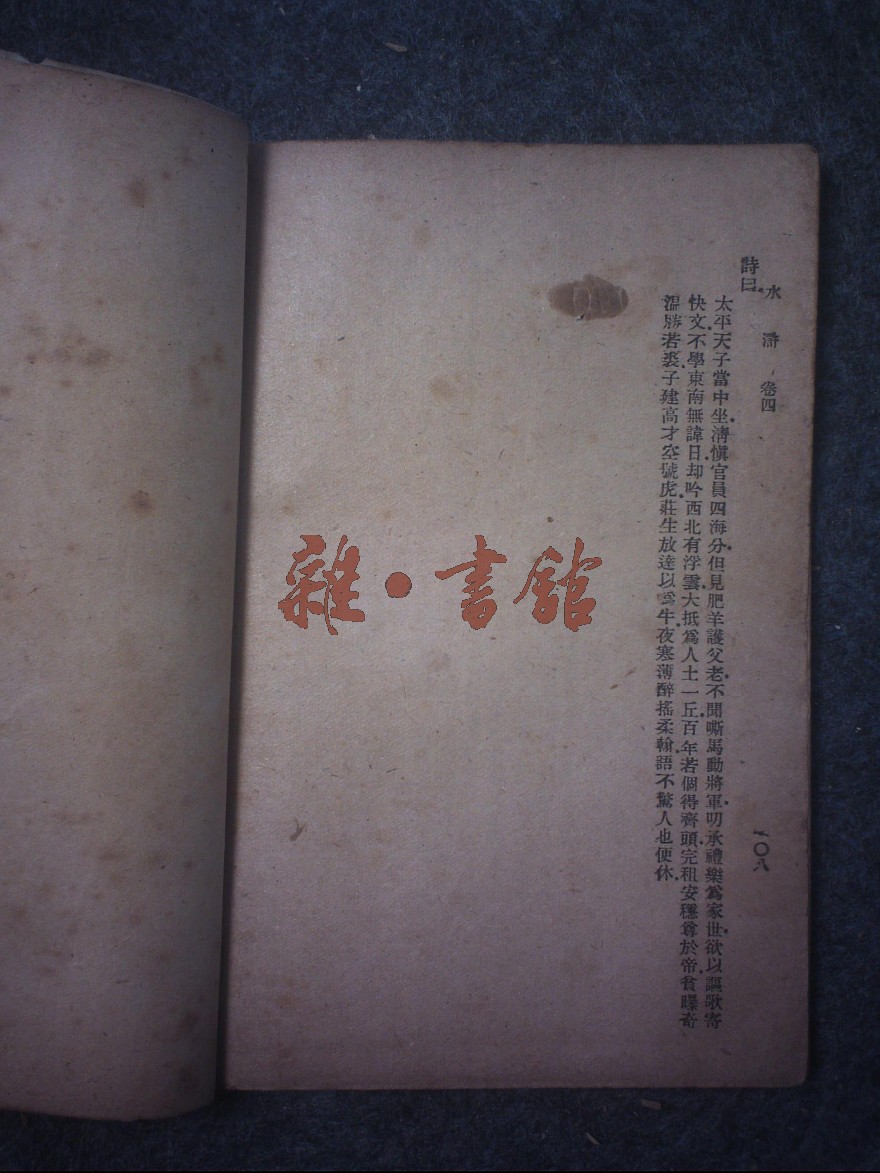 水滸 卷四 一〇八
詩曰
太平天子當中坐清愼官員四海分但見肥羊護父老不聞嘶馬動將軍叨承禮樂爲家世欲以謳歌寄
快文不學東南無諱日却吟西北有浮雲大抵爲人土一丘百年若個得齊頭完租安穩尊於帝負曝奇
溫勝若裘子建高才空號虎莊生放達以爲牛夜寒薄醉搖柔翰語不驚人也便休
雜・書館